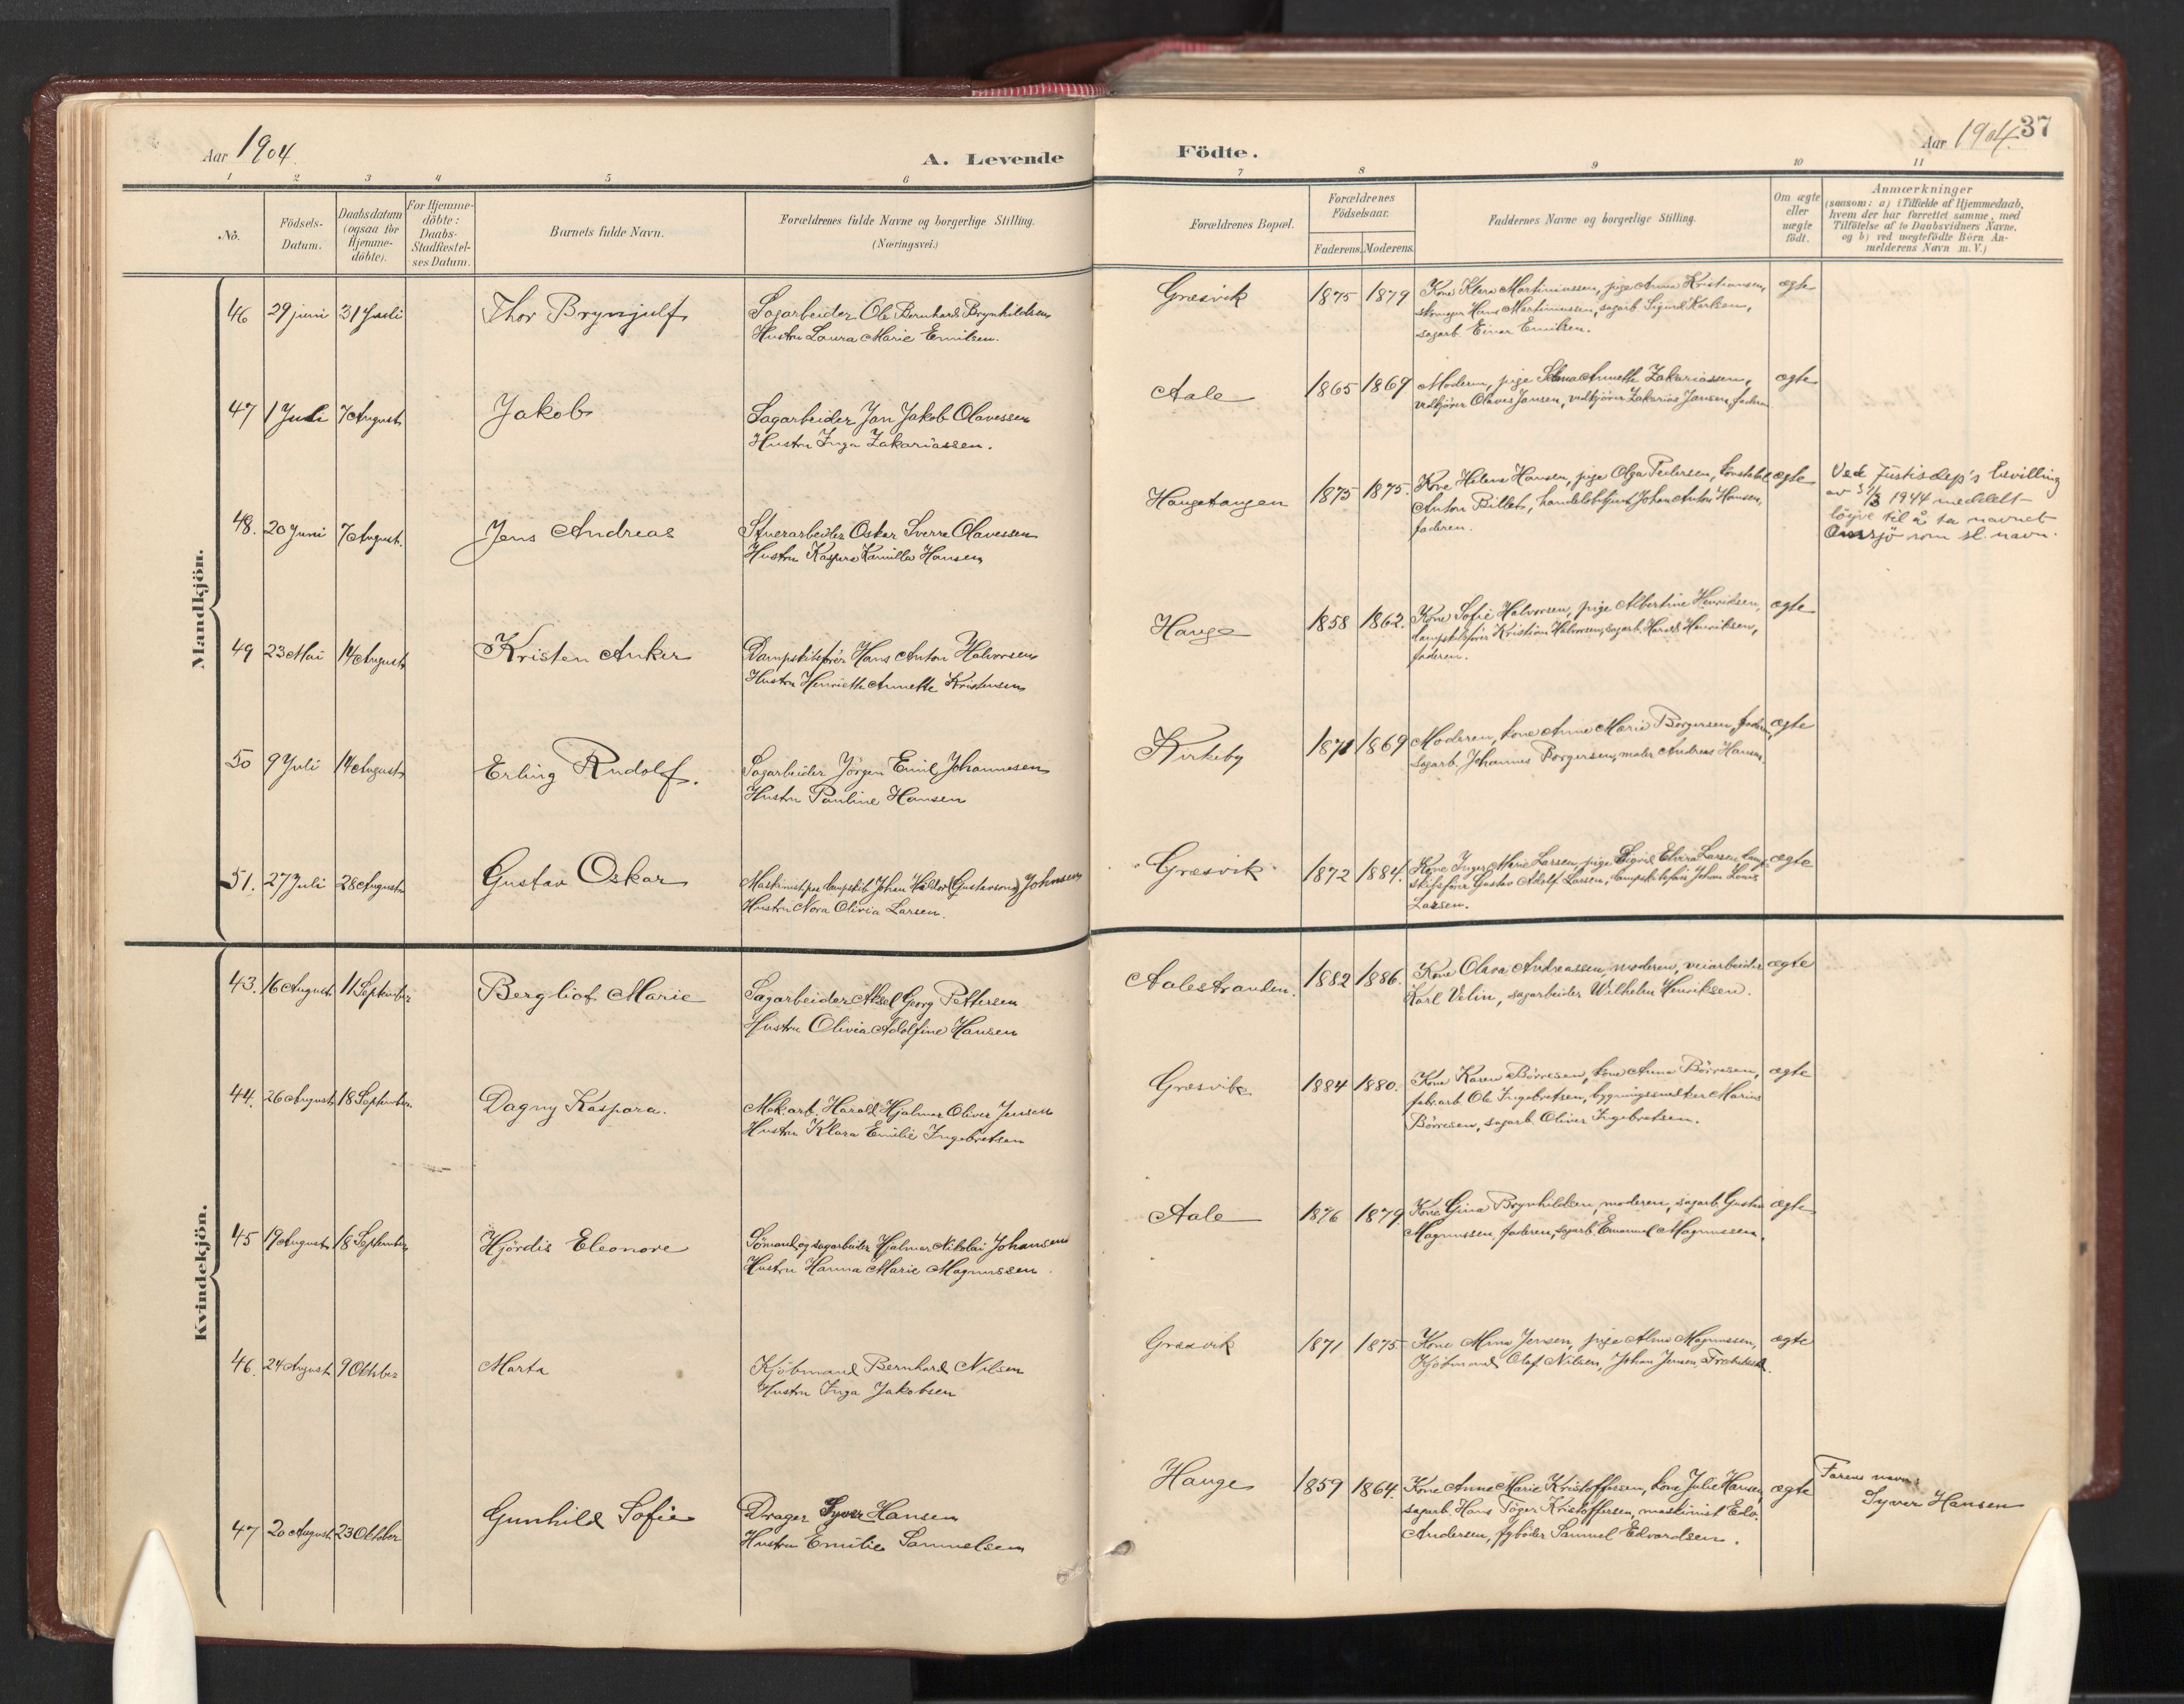 Aar 1904.
A. Levende
Födte.
Aar 1904. 37
1 2 3 4 5 6 7 8 9 10 11
No.
Födsels-
Datum.
Daabsdatum
(ogsaa for
Hjemme-
döbte).
For Hjemme-
döbte:
Daabs-
Stadfæstel-
ses Datum.
Barnets fulde Navn.
Forældrenes fulde Navne og borgerlige Stilling.
(Næringsvei.)
Forældrenes Bopæl.
Forældrenes
Födselsaar.
Faderens. Moderens.
Faddernes Navne og borgerlige Stilling.
Om ægte
eller
uægte
födt.
Anmærkninger
(saasom: a) i Tilfælde af Hjemmedaab,
hvem der har forrettet samme, med
Tilföielse af to Daabsvidners Navne,
og b) ved uægtefödte Börn An-
melderens Navn m. V.)
Mandkjön.
46 29 juni 31 Juli Thor Brynjulf Sagarbeider Ole Bernhard Brynhildsen
Hustru Laura Marie Emilsen.
Græsvik 1875 1879 Kone Klara Martinussen, pige Anna Kristiansen,
Hans Martinussen, sagarb. Sigurd Karlsen,
sagarb. Einar Emilsen.
ægte
47 1 Juli 7 August Jakob Sagarbeider Jan Jakob Olavessen
Hustru Inga Zakariassen.
Aale 1865 1869 Moderen, pige Annette Zakariassen,
vedkjører Olaves Jansen, vedkjører Zakarias Jansen, faderen
ægte
48. 20 Juni 7 August. Jens Andreas Stuerarbeider Oskar Sverre Olavessen
Hustru Kaspara Kamilla Hansen
Haugetangen 1875 1875. Kone Helene Hansen, pige Olga Pedersen, konstabel
Anton Billet, handelsbetjent Johan Anton Hansen,
faderen.
ægte
Ved Justisdep's bevilling
av 1944 meddelt
löyve til å ta navnet
som sl. navn.
49 23 Mai 14 August Kristen Anker Dampskibsfører Hans Anton Halvorsen
Hustru Henriette Annette Kristensen
Hauge 1858 1862. Kone Sofie Halvorsen, pige Albertine Henriksen,
dampskibsfører Kristian Halvorsen, sagarb. Harald Henriksen,
faderen.
ægte
50 9 Juli 14 August Erling Rudolf. Sagarbeider Jörgen Emil Johannesen
Hustru Pauline Hansen
Kirkeby 1871 1869 Moderen, kone Anne Marie Borgersen, faderen,
sagarb. Johannes Borgersen, maler Andreas Hansen.
ægte
51. 27 Juli 28 August Gustav Oskar Maskinist paa dampskib Johan Halvor (Gustavsen) Johnsen
Hustru Nora Olivia Larsen.
Græsvik 1872 1884. Kone Inger Marie Larsen, pige Sigrid Elvira Larsen, damp-
skibsfører Gustav Adolf Larsen, dampskibsfører Johan Louis
Larsen.
ægte
Kvindekjön.
43. 16 August 11 September Bergliot Marie Sagarbeider Aksel Georg Pettersen
Hustru Olivia Adolfine Hansen
Aalestranden. 1882 1886. Kone Olava Andreassen, moderen, veiarbeider
Karl Velin, sagarbeider Wilhelm Henriksen.
ægte
44. 26 August 18 September Dagny Kaspara. Mek. arb. Harald Hjalmar Oliver Jensen
Hustru Klara Emilie Ingebretsen
Græsvik 1884 1880. Kone Karen Börresen, kone Anna Börresen,
fabr.arb. Ole Ingebretsen, bygningssnekker Marius
Börresen, sagarb. Oliver Ingebretsen.
ægte
45 19 August 18 September Hjördis Eleonore Sömand og sagarbeider Hjalmar Nikolai Johansen
Hustru Hanna Marie Magnussen
Aale 1876 1879. Kone Gina Brynhildsen, moderen, sagarb. Gustav
Magnussen, faderen, sagarb. Emanuel Magnussen.
ægte
46. 24 August 9 Oktober Marta Kjöbmand Bernhard Nilsen
Hustru Inga Jakobsen
Græsvik 1871 1875 Kone Mina Jensen, pige Alma Magnussen,
Kjöbmand Olaf Nilsen, Johan Jensen, Fredrikstad.
ægte
47 20 August 23 Oktober Gunhild Sofie Drager Syver Hansen
Hustru Emilie Samuelsen
Hauge 1859 1864. Kone Anne Marie Kristoffersen, kone Julie Hansen,
sagarb. Hans Töger Kristoffersen, maskinist Edv.
Andersen, fyrböder Samuel Edvardsen.
ægte
Farens navn:
Syver Hansen